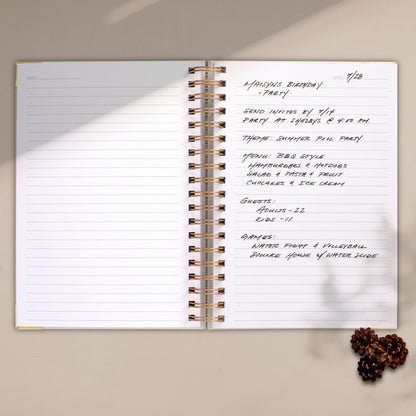 DATE
DATE 7/28
MAISYN'S BIRTHDAY
• PARTY •
SEND INVITES BY 7/14
PARTY AT SHELBY'S @ 4:00 PM.
THEME: SUMMER POOL PARTY
MENU: BBQ STYLE
HAMBURGERS & HOTDOGS
SALAD & PASTA & FRUIT
CUPCAKES & ICE CREAM
GUESTS:
ADULTS - 22
KIDS - 11
GAMES:
WATER FIGHT & VOLLEYBALL
BOUNCE HOUSE W/ WATER SLIDE